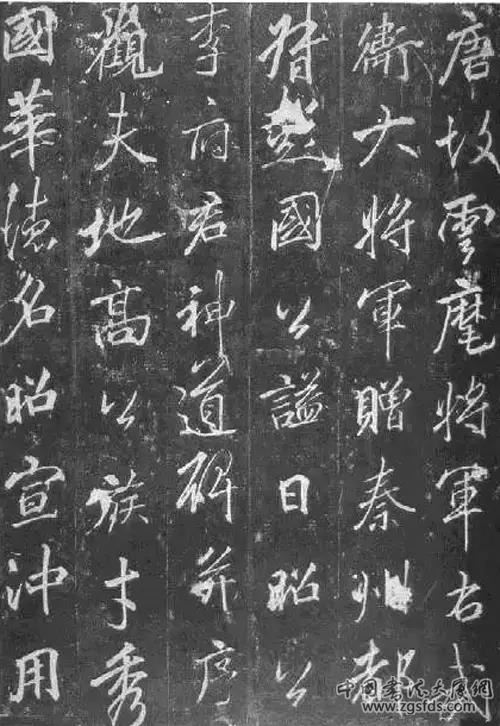 唐故雲麾將軍右武
衛大將軍贈秦州都
督國公謚曰昭公
李府君神道碑并序
觀夫地高公族才秀
國華德名昭宣沖用
www.zgsfds.com